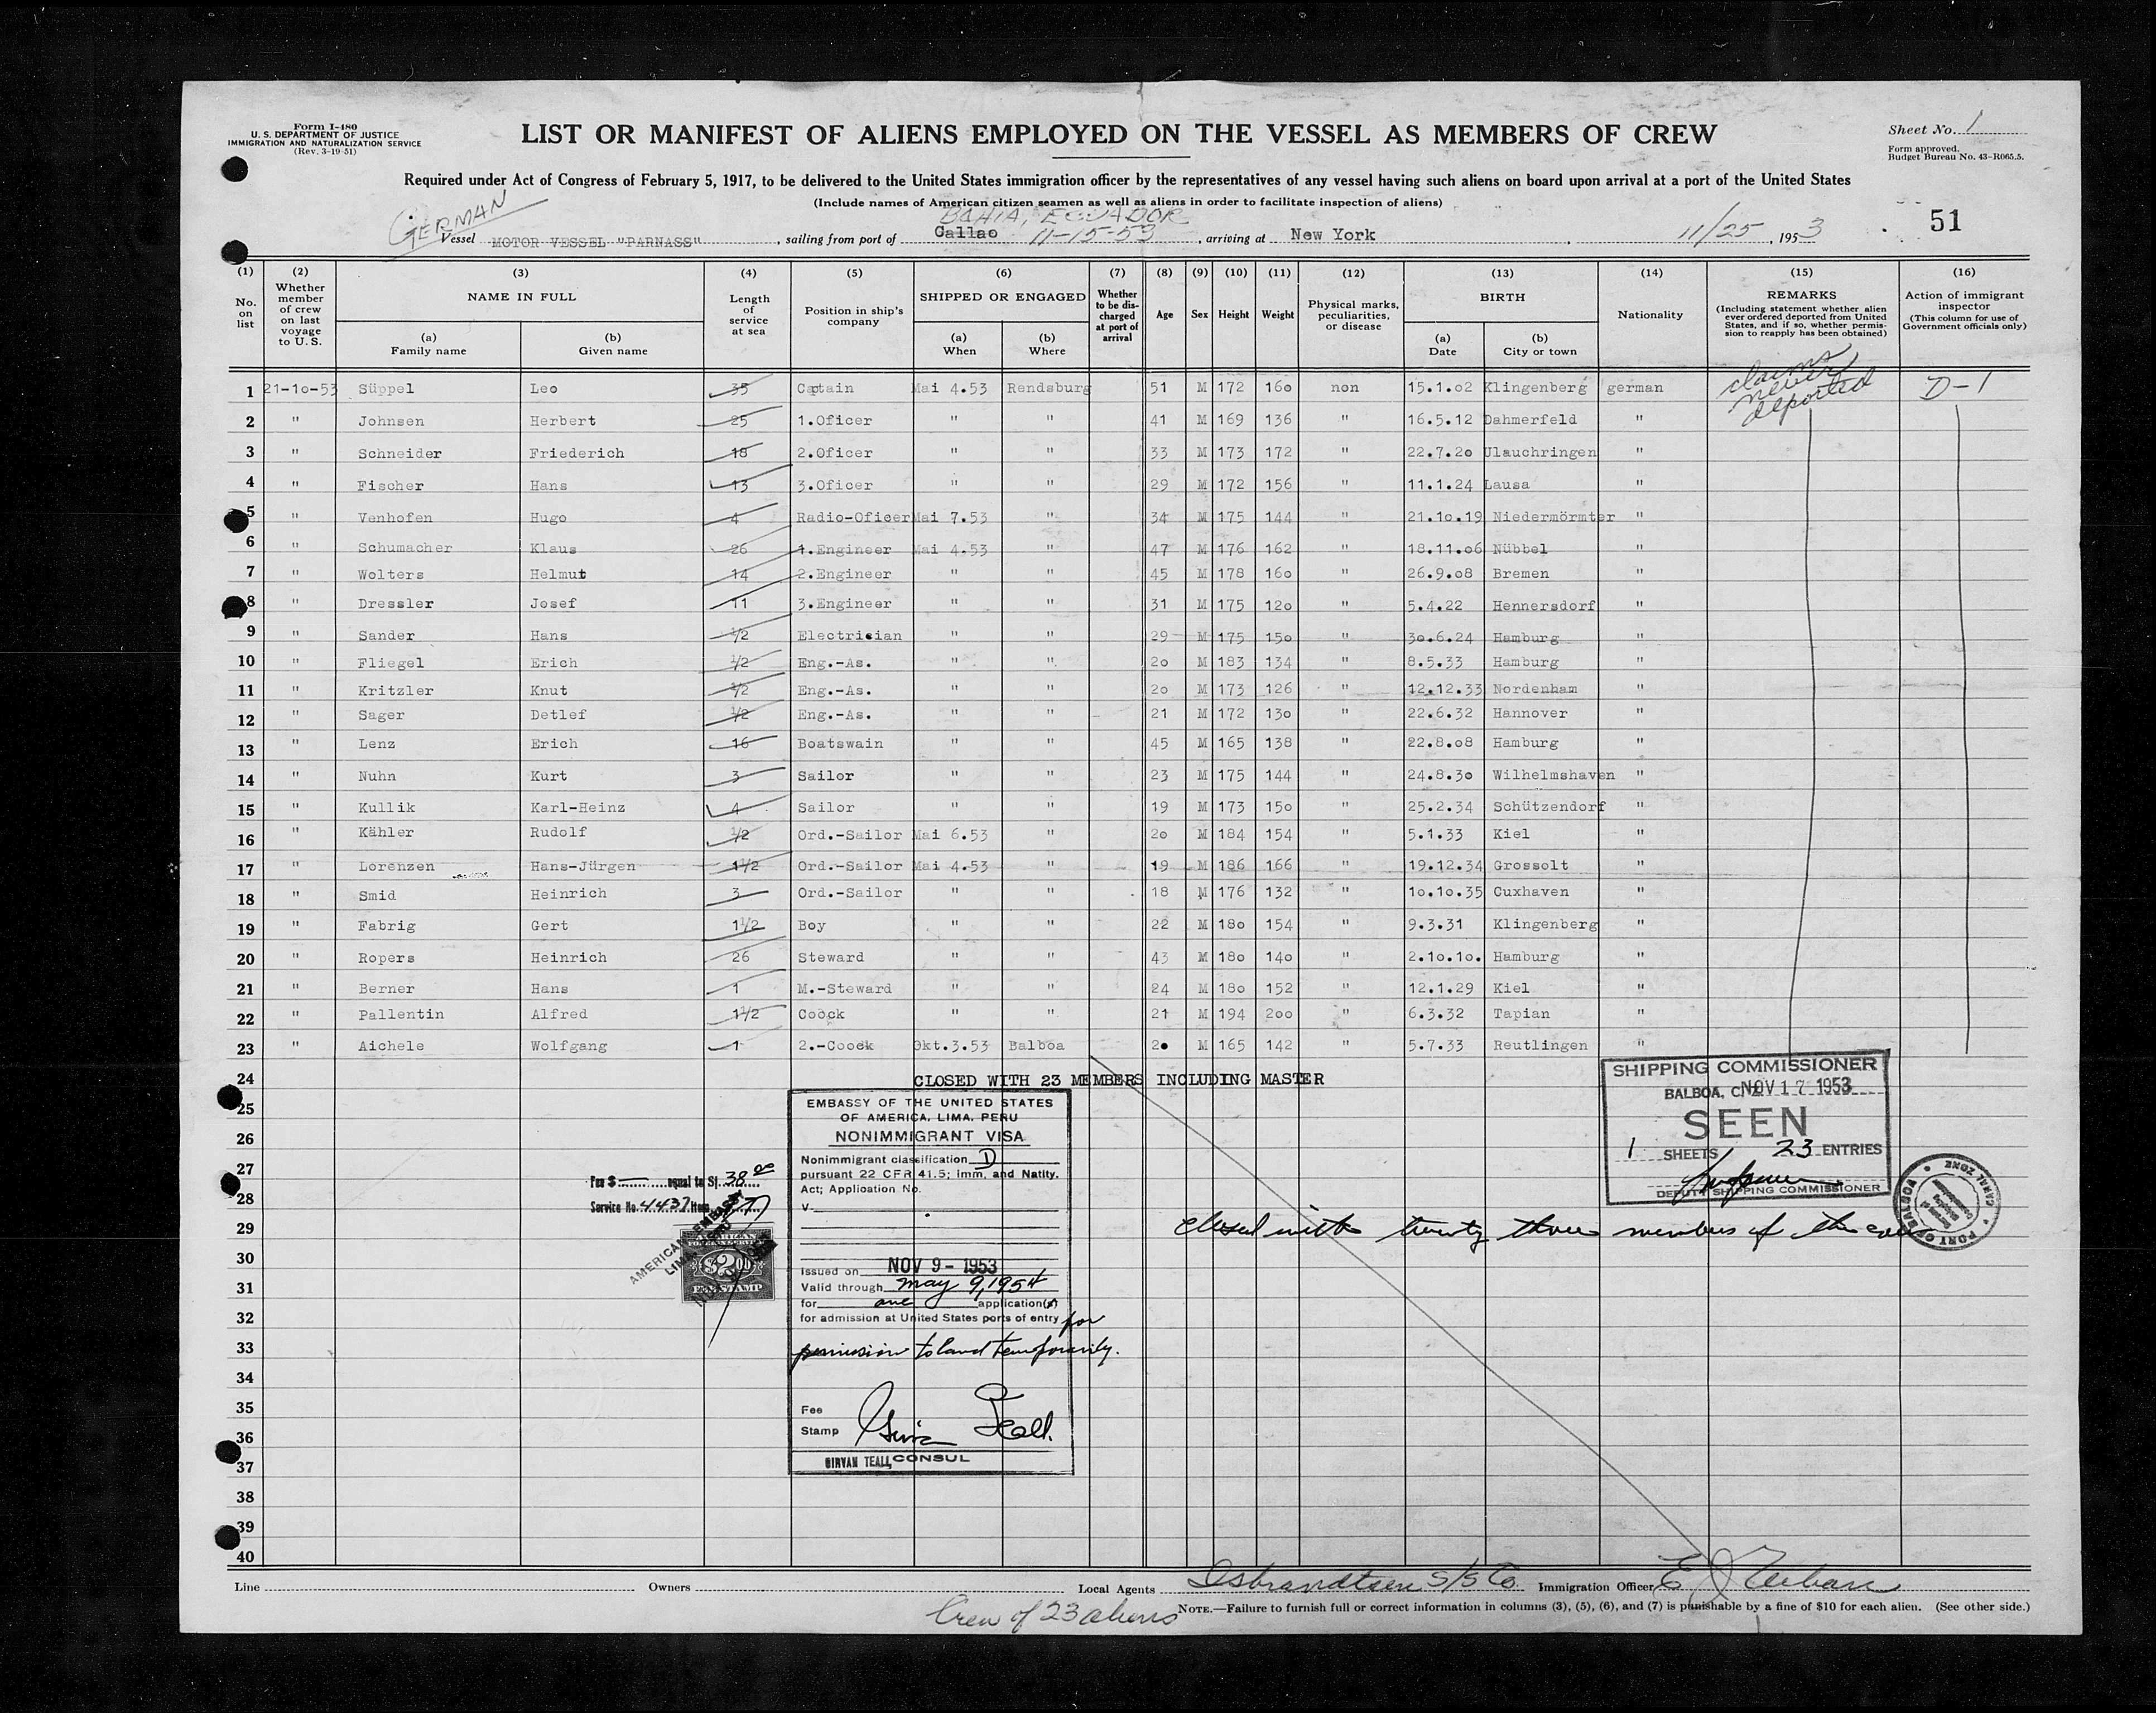 Form I-480
U. S. DEPARTMENT OF JUSTICE
IMMIGRATION AND NATURALIZATION SERVICE
(Rev. 3-19-51)
LIST OR MANIFEST OF ALIENS EMPLOYED ON THE VESSEL AS MEMBERS OF CREW
Sheet No. 1
Form approved.
Budget Bureau No. 43-R065.5.
Required under Act of Congress of February 5, 1917, to be delivered to the United States immigration officer by the representatives of any vessel having such aliens on board upon arrival at a port of the United States
(Include names of American citizen seamen as well as aliens in order to facilitate inspection of aliens)
GERMAN
BAHIA, ECUADOR
Vessel MOTOR VESSEL "PARNASS", sailing from port of Callao 11-15-53, arriving at New York, 11/25, 1953
51
(1) (2) (3) (4) (5) (6) (7) (8) (9) (10) (11) (12) (13) (14) (15) (16)
No. on list
Whether member of crew on last voyage to U. S.
NAME IN FULL
(a) Family name
(b) Given name
Length of service at sea
Position in ship's company
SHIPPED OR ENGAGED
(a) When
(b) Where
Whether to be discharged at port of arrival
Age
Sex
Height
Weight
Physical marks, peculiarities, or disease
BIRTH
(a) Date
(b) City or town
Nationality
REMARKS
(Including statement whether alien ever ordered deported from United States, and if so, whether permission to reapply has been obtained)
Action of immigrant inspector
(This column for use of Government officials only)
1 21-10-53 Süppel Leo 35 Captain Mai 4.53 Rendsburg 51 M 172 160 non 15.1.02 Klingenberg german claims never deported D-1
2 " Johnsen Herbert 25 1.Oficer " " 41 M 169 136 " 16.5.12 Dahmerfeld "
3 " Schneider Friederich 18 2.Oficer " " 33 M 173 172 " 22.7.20 Ulauchringen "
4 " Fischer Hans 13 3.Oficer " " 29 M 172 156 " 11.1.24 Lausa "
5 " Venhofen Hugo 4 Radio-Oficer Mai 7.53 " 34 M 175 144 " 21.10.19 Niedermörmter "
6 " Schumacher Klaus 26 1.Engineer Mai 4.53 " 47 M 176 162 " 18.11.06 Nübbel "
7 " Wolters Helmut 14 2.Engineer " " 45 M 178 160 " 26.9.08 Bremen "
8 " Dressler Josef 11 3.Engineer " " 31 M 175 120 " 5.4.22 Hennersdorf "
9 " Sander Hans 1/2 Electrician " " 29 M 175 150 " 30.6.24 Hamburg "
10 " Fliegel Erich 1/2 Eng.-As. " " 20 M 183 134 " 8.5.33 Hamburg "
11 " Kritzler Knut 1/2 Eng.-As. " " 20 M 173 126 " 12.12.33 Nordenham "
12 " Sager Detlef 1/2 Eng.-As. " " 21 M 172 130 " 22.6.32 Hannover "
13 " Lenz Erich 16 Boatswain " " 45 M 165 138 " 22.8.08 Hamburg "
14 " Nuhn Kurt 3 Sailor " " 23 M 175 144 " 24.8.30 Wilhelmshaven "
15 " Kullik Karl-Heinz 4 Sailor " " 19 M 173 150 " 25.2.34 Schützendorf "
16 " Kähler Rudolf 1/2 Ord.-Sailor Mai 6.53 " 20 M 184 154 " 5.1.33 Kiel "
17 " Lorenzen Hans-Jürgen 1 1/2 Ord.-Sailor Mai 4.53 " 19 M 186 166 " 19.12.34 Grossolt "
18 " Smid Heinrich 3 Ord.-Sailor " " 18 M 176 132 " 10.10.35 Cuxhaven "
19 " Fabrig Gert 1 1/2 Boy " " 22 M 180 154 " 9.3.31 Klingenberg "
20 " Ropers Heinrich 26 Steward " " 43 M 180 140 " 2.10.10. Hamburg "
21 " Berner Hans 1 M.-Steward " " 24 M 180 152 " 12.1.29 Kiel "
22 " Pallentin Alfred 1 1/2 Coock " " 21 M 194 200 " 6.3.32 Tapian "
23 " Aichele Wolfgang 1 2.-Coock Okt.3.53 Balboa 20 M 165 142 " 5.7.33 Reutlingen "
24 CLOSED WITH 23 MEMBERS INCLUDING MASTER
25
26
27
28
29
30
31
32
33
34
35
36
37
38
39
40
EMBASSY OF THE UNITED STATES
OF AMERICA, LIMA, PERU
NONIMMIGRANT VISA
Nonimmigrant classification D
pursuant 22 CFR 41.5; Imm. and Natity.
Act; Application No.
V.
Issued on NOV 9 - 1953
Valid through May 9, 1954
for one application(s)
for admission at United States ports of entry for
permission to land temporarily.
Fee
Stamp
GIRVAN TEALL, CONSUL
Fee $ equal to S/. 38.00
Service No. 4437 Item
AMERICAN EMBASSY
LIMA, PERU
AMERICAN
$2.00
FEE STAMP
SHIPPING COMMISSIONER
BALBOA, C. Z. NOV 17 1953
SEEN
1 SHEETS 23 ENTRIES
DEPUTY SHIPPING COMMISSIONER
PORT OF BALBOA
CANAL ZONE
Closed with twenty three members of the crew
Line Owners Local Agents Isbrandtsen S/S Co. Immigration Officer
Crew of 23 aliens
NOTE.—Failure to furnish full or correct information in columns (3), (5), (6), and (7) is punishable by a fine of $10 for each alien. (See other side.)